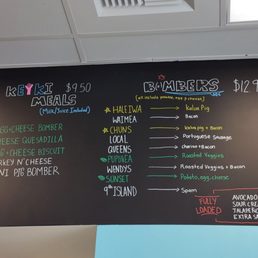 KEIKI $9.50
MEALS
(Milk/Juice Included)
EGG+CHEESE BOMBER
CHEESE QUESADILLA
EGG+CHEESE BISCUIT
TURKEY N'CHEESE
MINI PIG BOMBER
BOMBERS $12.9
(all include potatoes, egg & cheese)
HALEIWA Kalua Pig
WAIMEA Bacon
CHUNS Kalua pig + Bacon
LOCAL Portuguese Sausage
QUEENS Chorizo + Bacon
PUPUKEA Roasted Veggies
WENDYS Roasted Veggies + Bacon
SUNSET Potato, egg, cheese
9TH ISLAND Spam
FULLY LOADED
AVOCADO
SOUR CREAM
JALAPEÑO
EXTRA SA